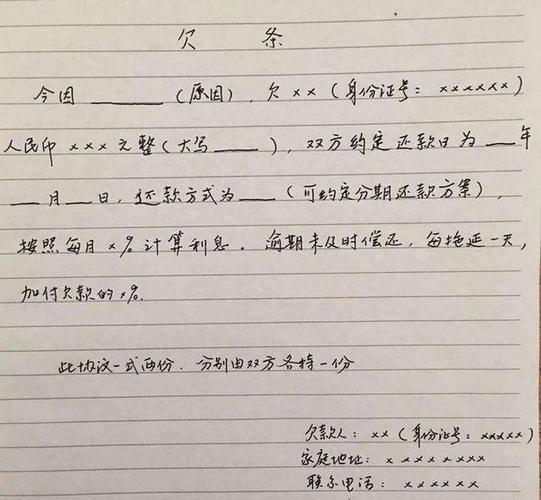 欠 条
今因______(原因),欠××(身份证号:××××××)
人民币×××元整(大写____),双方约定还款日为__年
__月__日,还款方式为___(可约定分期还款方案),
按照每月×%计算利息。逾期未及时偿还,每拖延一天,
加付欠款的×%.
此协议一式两份.分别由双方各持一份
欠款人:××(身份证号:×××××)
家庭地址:× ×××××××
联系电话:××××××